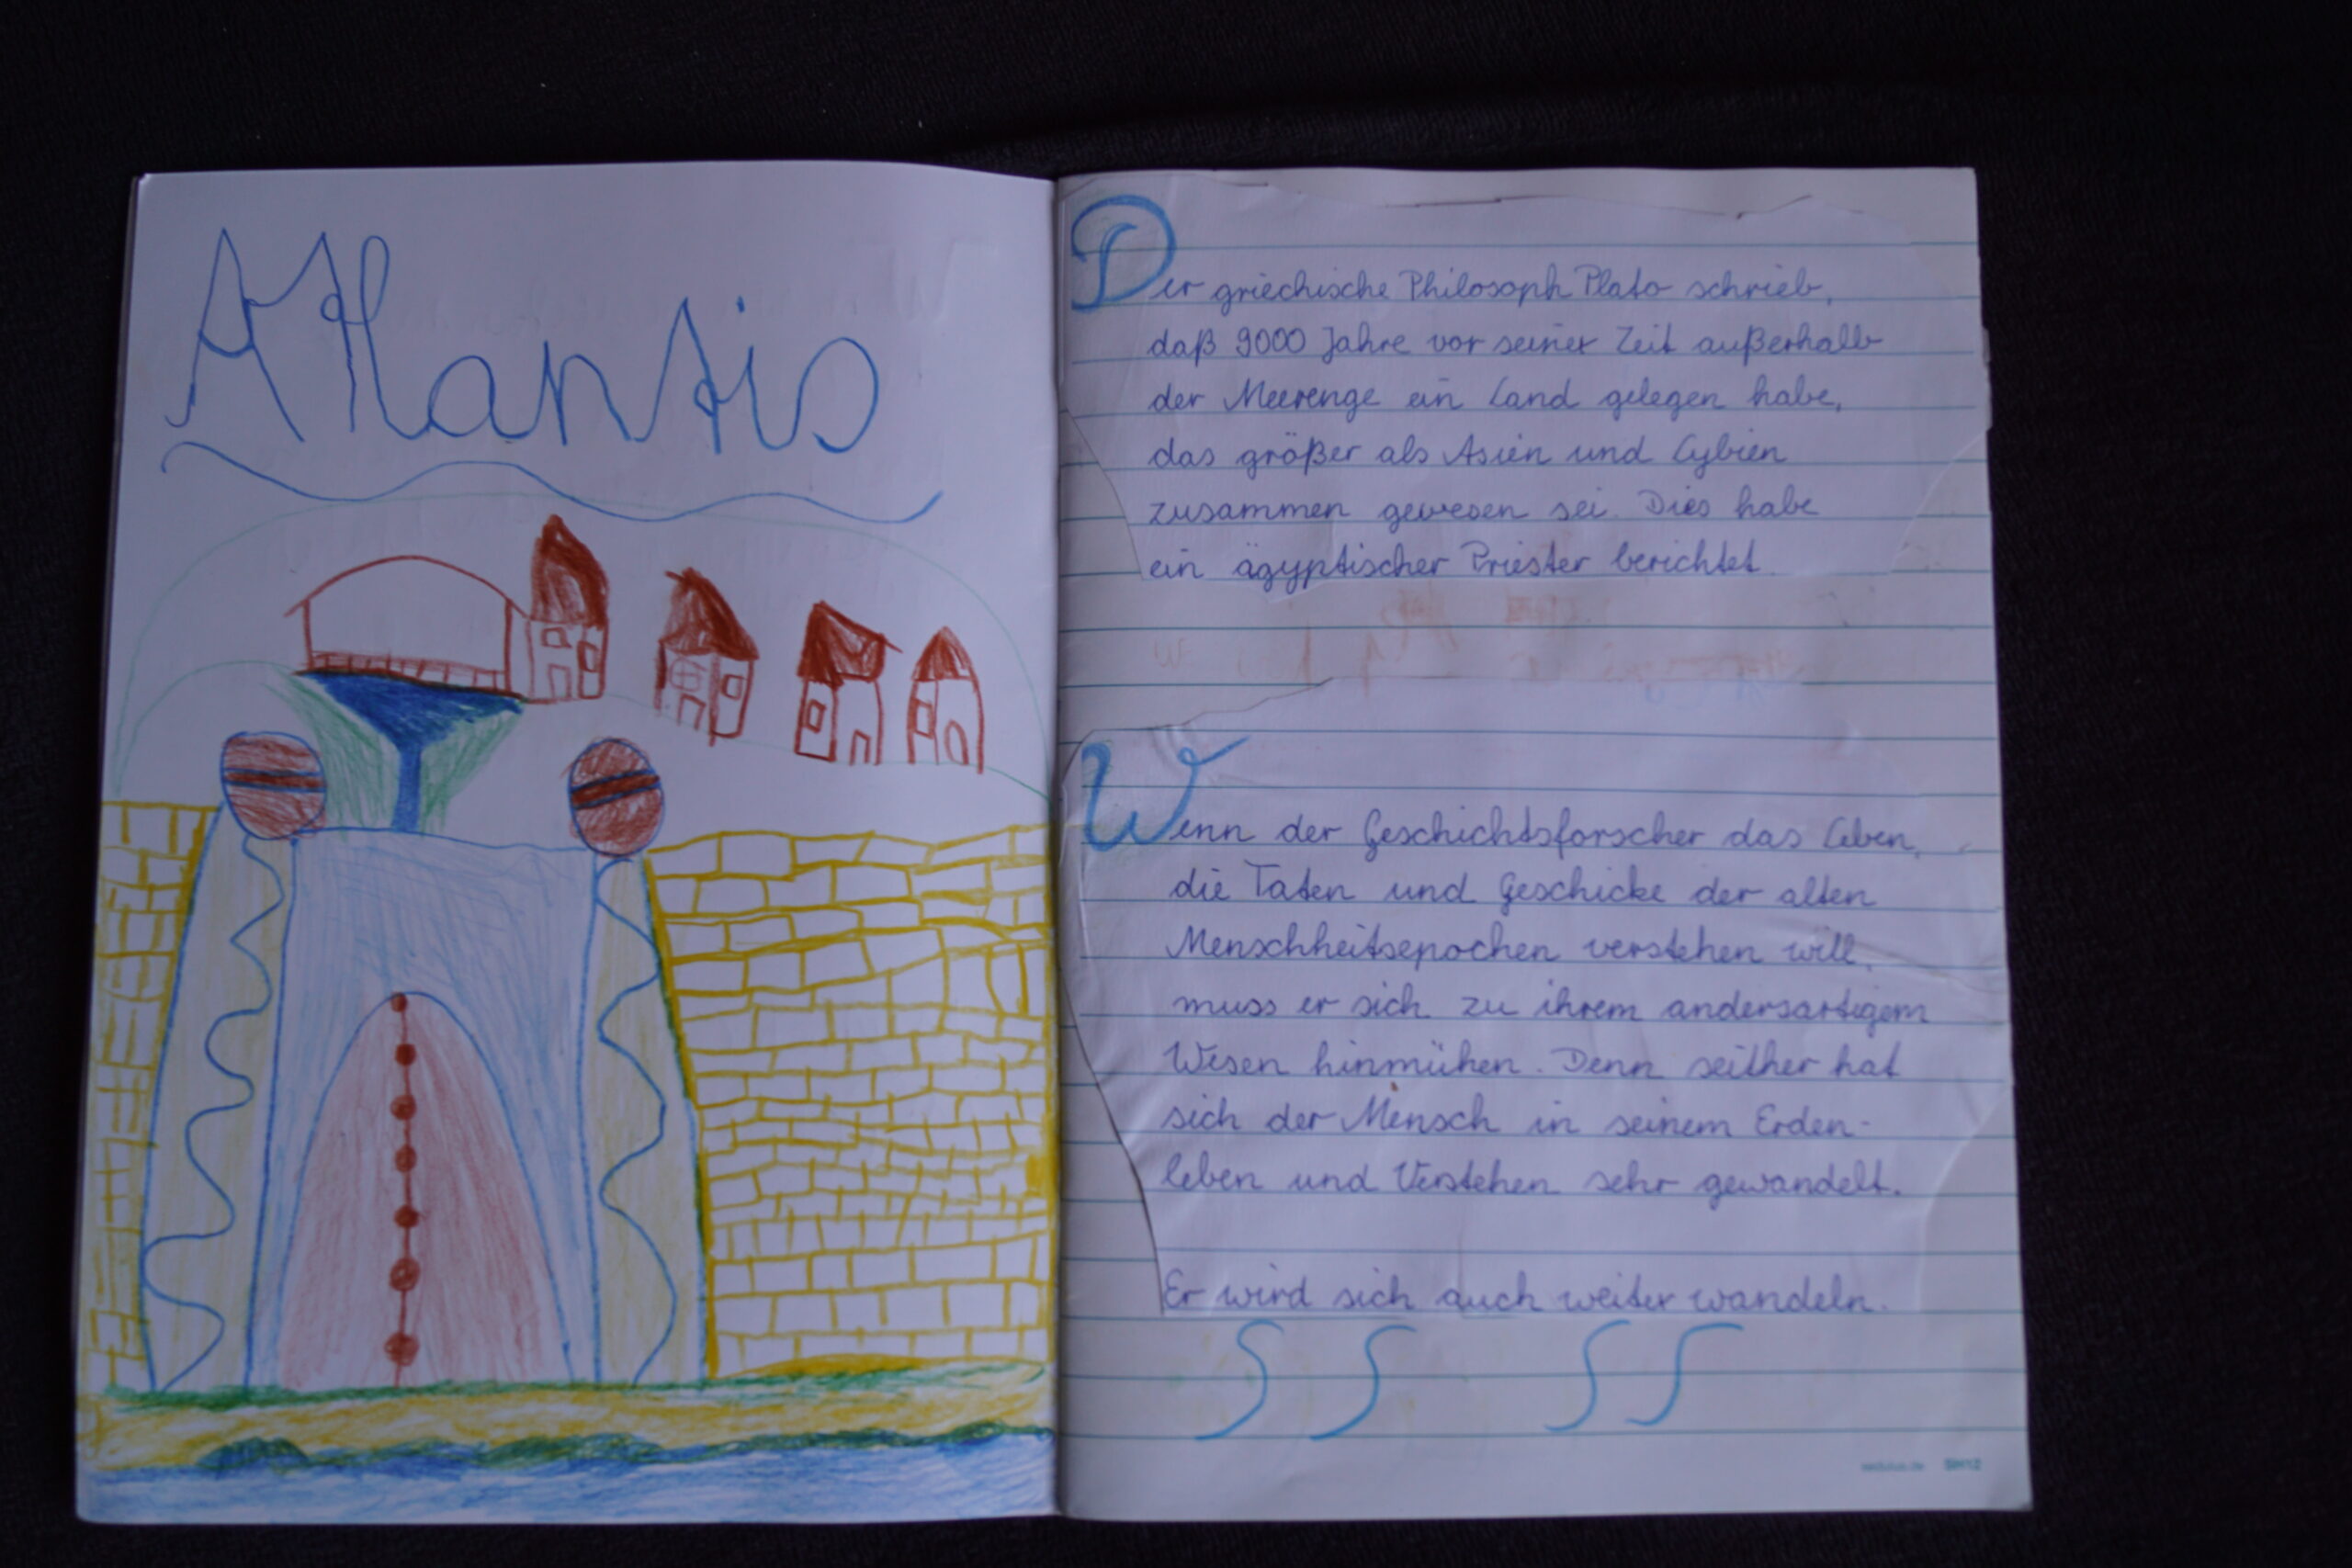 Atlantis
Der griechische Philosoph Plato schrieb,
daß 9000 Jahre vor seiner Zeit außerhalb
der Meerenge ein Land gelegen habe,
das größer als Asien und Lybien
zusammen gewesen sei. Dies habe
ein ägyptischer Priester berichtet.
Wenn der Geschichtsforscher das Leben,
die Taten und Geschicke der alten
Menschheitsepochen verstehen will,
muss er sich zu ihrem andersartigem
Wesen hinmühen. Denn seither hat
sich der Mensch in seinem Erden-
leben und Verstehen sehr gewandelt.
Er wird sich auch weiter wandeln.
SH12